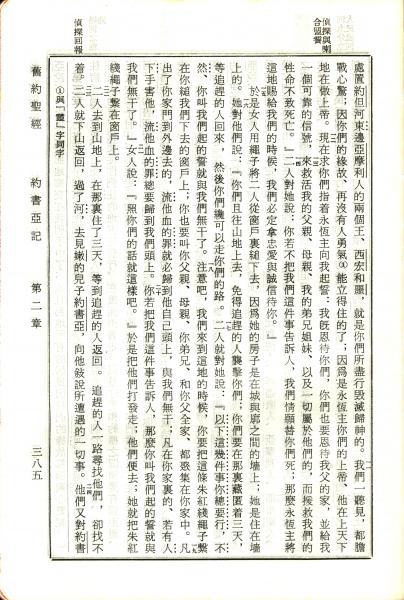 偵探與喇
合盟誓
處置約但河東邊亞摩利人的兩個王、西宏和噩、就是你們所盡行毀滅歸神的。我們一聽見，都膽
戰心驚；因你們的緣故、再沒有人勇氣①能立得住的了；因爲是永恆主你們的上帝、他在上天下
地在做上帝。現在求你們指着永恆主向我起誓：我旣恩待你們，你們也要恩待我父的家，並給我
一個可靠的信號，來救活我的父親、母親、我的弟兄姐妹、以及一切屬於他們的，而援救我們的
性命不致死亡。』二人對她說：『你若不把我們這件事告訴人，我們情願替你們死；那麼永恆主將
這地賜給我們的時候，我們必定拿忠愛與誠信待你。』
於是女人用繩子將二人從窗戶裏縋下去，因爲她的房子是在城與廓之間的墻上；她是住在墻
上的。她對他們說：『你們且往山地上去，免得追趕的人襲擊你們；你們要在那裏藏匿着三天，
等追趕的人回來，然後你們纔可以走你們的路。』二人就對她說：『以下這幾件事你總要行，不
然、你叫我們起的誓就與我們無干了。注意吧，我們來到這地的時候，你要把這條朱紅綫繩子繫
在你縋我們下去的窗戶上；你也要叫你父親、母親、你弟兄、和你父全家、都聚集在你家中。凡
出了你家門到外邊去的，流他血的罪就必歸到他自己頭上，與我們無干；凡在你家裏的、若有人
下手害他，流他血的罪總要歸到我們頭上。你若把我們這件事告訴人，那麼你叫我們起的誓就與
我們無干了。』女人說：『照你們的話就這樣吧。』於是把他們打發走；他們便去；她就把朱紅
綫繩子繫在窗戶上。
偵探回報
二人去到山地上，在那裏住了三天，等到追趕的人返回。追趕的人一路尋找他們，卻找不
着。二人就下山返回，過了河，去見嫩的兒子約書亞，向他敘說所遭遇的一切事。他們又對約書
①與「靈」字同字
舊約聖經 約書亞記 第二章 三八五